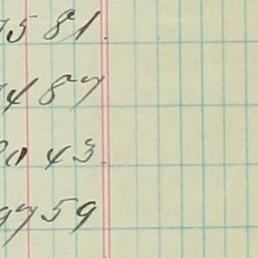 75 81
7487
20 43
9759